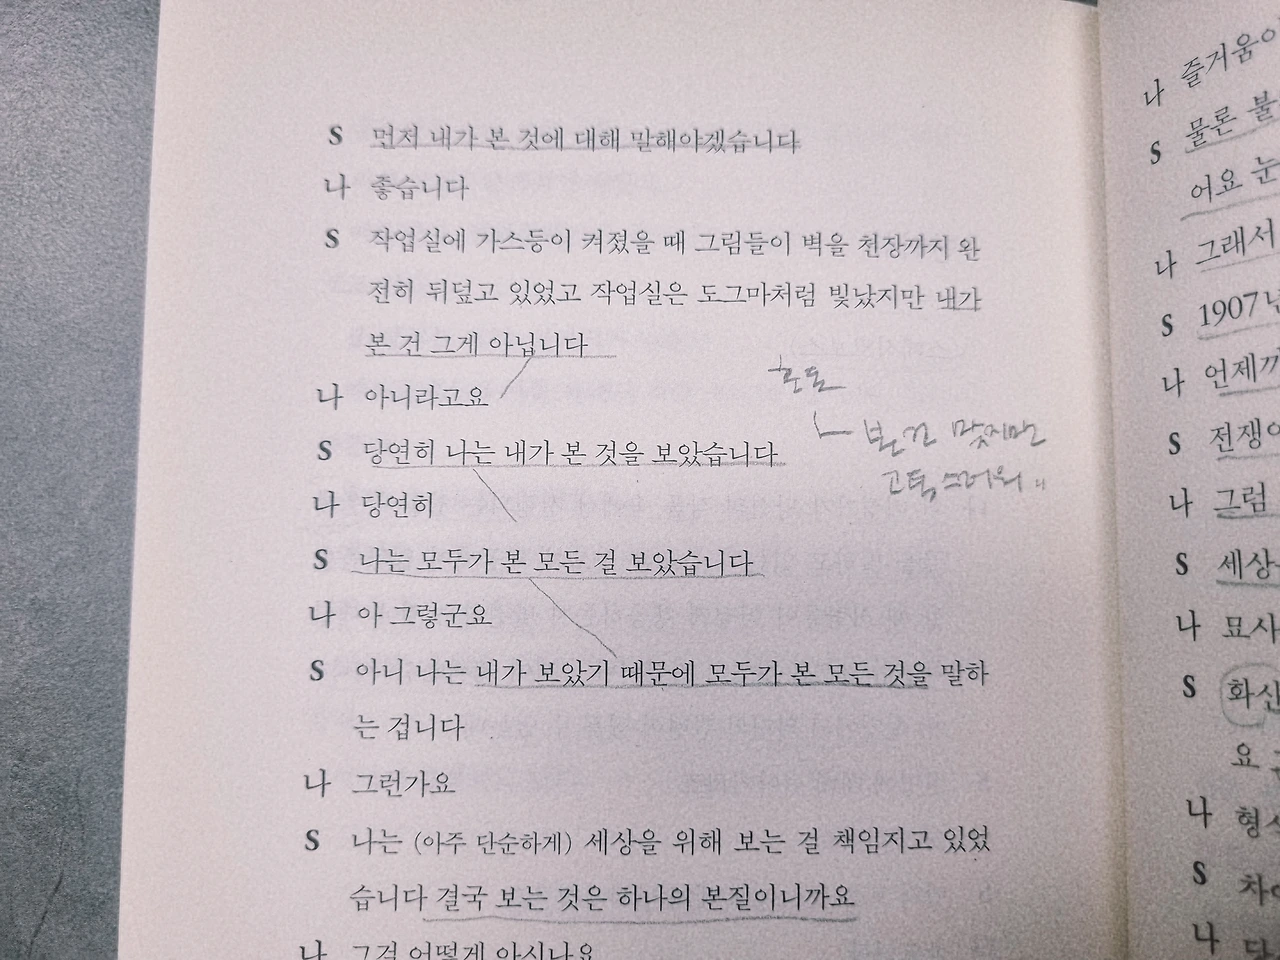 S 먼저 내가 본 것에 대해 말해야겠습니다
나 좋습니다
S 작업실에 가스등이 켜졌을 때 그림들이 벽을 천장까지 완
전히 뒤덮고 있었고 작업실은 도그마처럼 빛났지만 내가
본 건 그게 아닙니다
나 아니라고요
S 당연히 나는 내가 본 것을 보았습니다
나 당연히
S 나는 모두가 본 모든 걸 보았습니다
나 아 그렇군요
S 아니 나는 내가 보았기 때문에 모두가 본 모든 것을 말하
는 겁니다
나 그런가요
S 나는 (아주 단순하게) 세상을 위해 보는 걸 책임지고 있었
습니다 결국 보는 것은 하나의 본질이니까요
나 그걸 어떻게 아시나요
혼돌
본건 맞지만
나 즐거움이
S 물론 불
어요 눈
나 그래서
S 1907년
나 언제까
S 전쟁이
나 그럼
S 세상
나 묘사
S 화산
요
나 형식
S 차이
나